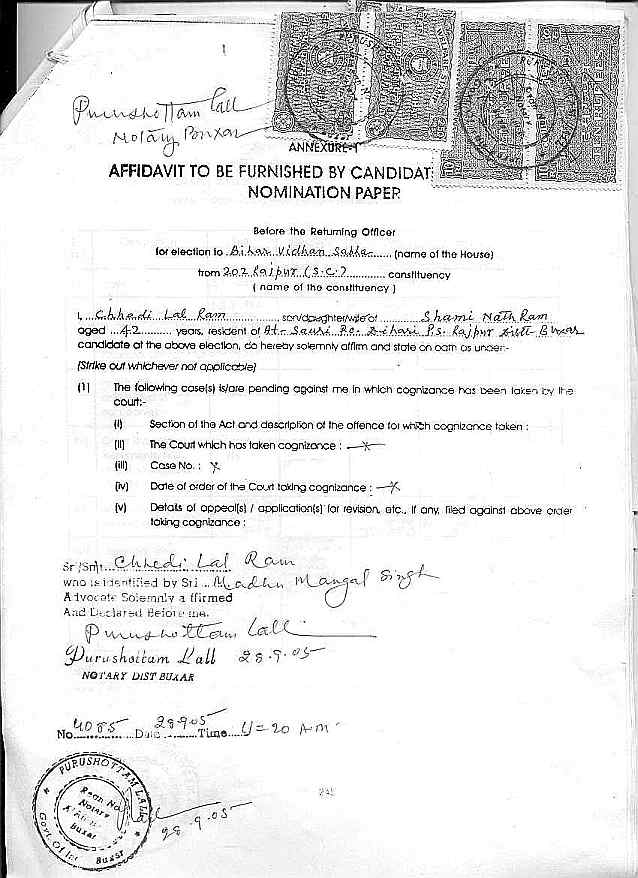 Purushottam Lall
Notary Buxar
ANNEXURE-1
AFFIDAVIT TO BE FURNISHED BY CANDIDAT
NOMINATION PAPER
Before the Returning Officer
for election to Bihar Vidhan Sabha (name of the House)
from 202 Rajpur (S.C.) constituency
( name of the constituency )
I, Chhedi Lal Ram son/daughter/wife of Shami Nath Ram
aged 42 years, resident of At- Sauri Po. Dihari P.S. Rajpur Distt Buxar
candidate at the above election, do hereby solemnly affirm and state on oath as under:-
(Strike out whichever not applicable)
(1) The following case(s) is/are pending against me in which cognizance has been taken by the
court:-
(i) Section of the Act and description of the offence for which cognizance taken :
(ii) The Court which has taken cognizance : —x—
(iii) Case No. : x
(iv) Date of order of the Court taking cognizance : —x
(v) Details of appeal(s) / application(s) for revision, etc., if any, filed against above order
taking cognizance :
Sri/Smt. Chhedi Lal Ram
who is identified by Sri Madhu Mangal Singh
Advocate Solemnly affirmed
And Declared Before me.
Purushottam Lall
Purushottam Lall 28.9.05
NOTARY DIST BUXAR
No. 4085 Date 28.9.05 Time 4=20 AM
PURUSHOTTAM LALL
Notary
Buxar
Govt. of
Buxar
28.9.05